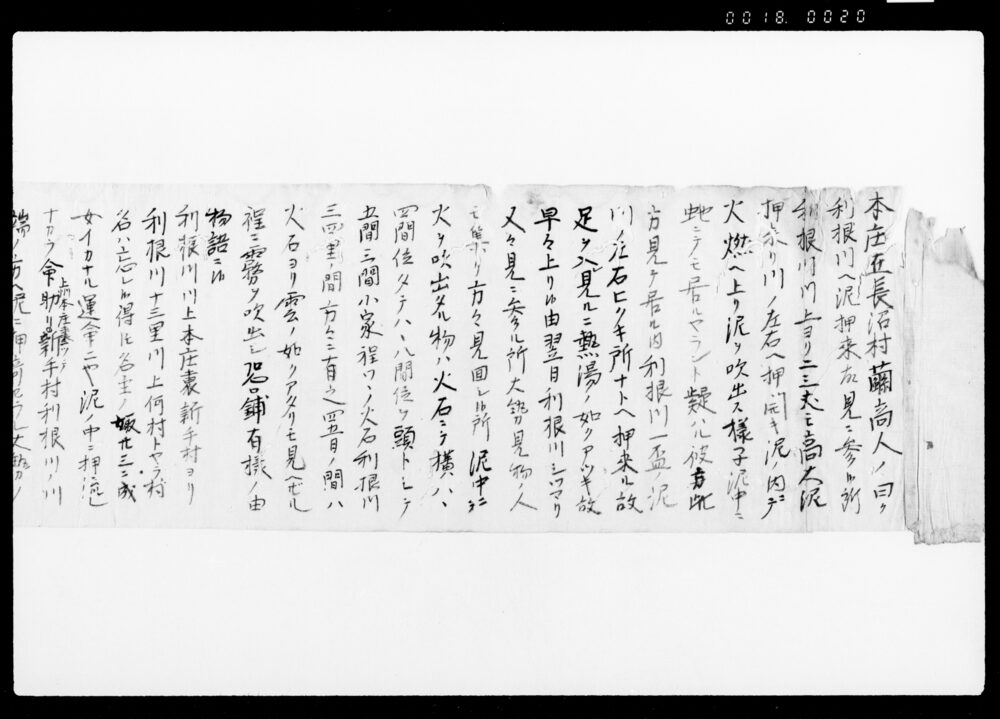 0018. 0020
本庄在長沼村繭商人ノ曰ク
利根川ヘ泥押来故見ニ参ル所
利根川川上ヨリ二三丈モ高大泥
押来リ川ノ左右ヘ押開キ泥ノ内ニテ
火燃ヘ上リ泥ヲ吹出ス様子泥中ニ
蛇ニテモ居ルヤラント疑ハル彼方此
方見テ居ル内利根川一盃ノ泥
川ノ左右ヒクキ所ナトヘ押来ル故
足ヲ入見ルニ熱湯ノ如クアツキ故
早々上リ由翌日利根川シツマリ
又々見ニ参ル所大勢見物人
モ集リ方々見回シ所泥中ニ
火ヲ吹出タル物ハ火石ニテ横ハ、
四間位タテハ、八間位ヲ頭トシテ
五間三間小家程ツヽノ火石利根川
三四里ノ間方々ニ有之四五日ノ間ハ
火石ヨリ雲ノ如クアタリモ見ヘサル
程ニ霧ヲ吹出シ恐鋪有様ノ由
物語ニ
利根川川上本庄裏新手村ヨリ
利根川十三里川上何村トヤラ村
名ハ忘シ得共名主ノ娘廿三成
女イカナル運命ニヤ泥ノ中ニ押流シ
ナカラ命助リ新手村利根川ノ川
上州本庄裏
端ノ方ヘ泥ニ押